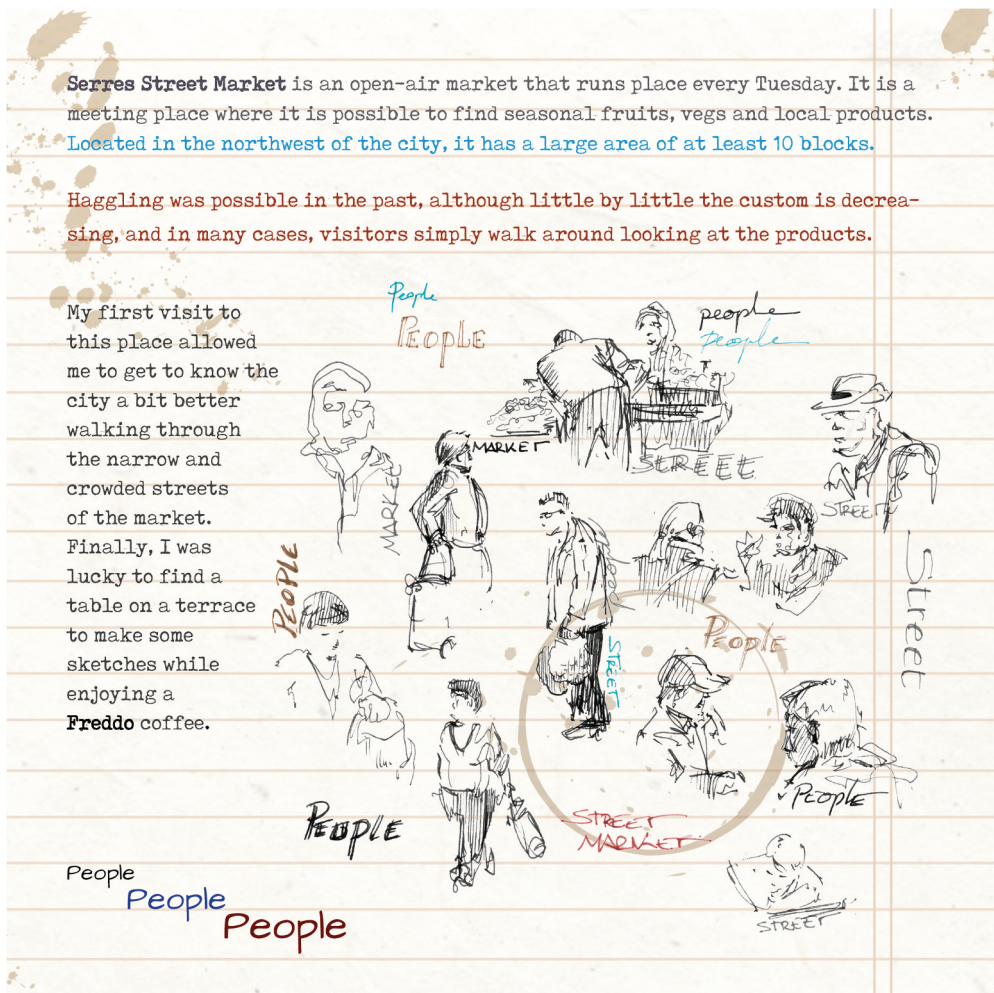 Serres Street Market is an open-air market that runs place every Tuesday. It is a
meeting place where it is possible to find seasonal fruits, vegs and local products.
Located in the northwest of the city, it has a large area of at least 10 blocks.
Haggling was possible in the past, although little by little the custom is decrea-
sing, and in many cases, visitors simply walk around looking at the products.
My first visit to
this place allowed
me to get to know the
city a bit better
walking through
the narrow and
crowded streets
of the market.
Finally, I was
lucky to find a
table on a terrace
to make some
sketches while
enjoying a
Freddo coffee.
People
PEOPLE
people
people
MARKET
STREEE
MARKET
STREET
Street
PEOPLE
STREET
PEOPLE
PEOPLE
STREET
MARKET
PEOPLE
STREET
People
People
People